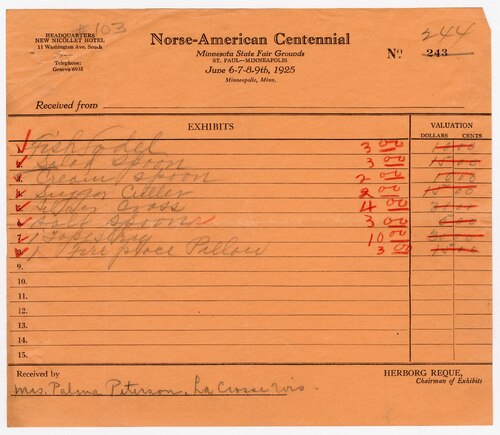 # 103
HEADQUARTERS
NEW NICOLLET HOTEL
11 Washington Ave. South
Telephone:
Geneva 6935
Norse-American Centennial
Minnesota State Fair Grounds
ST. PAUL—MINNEAPOLIS
June 6-7-8-9th, 1925
Minneapolis, Minn.
244
No 243
Received from
EXHIBITS
VALUATION
DOLLARS CENTS
1. Fish Ladel 3 00
2. Salad Spoon 3 00 15 00
3. Cream Spoon 2 00 10 00
4. Sugar 2 00 15 00
5. Cross 4 00
6. Spoon 3 00
7. 1 Tapestry 10 00
8. 1 Fire place Pillow 3 00 15 00
9.
10.
11.
12.
13.
14.
15.
Received by
HERBORG REQUE,
Chairman of Exhibits
Mrs. Palma Peterson, La Crosse Wis.